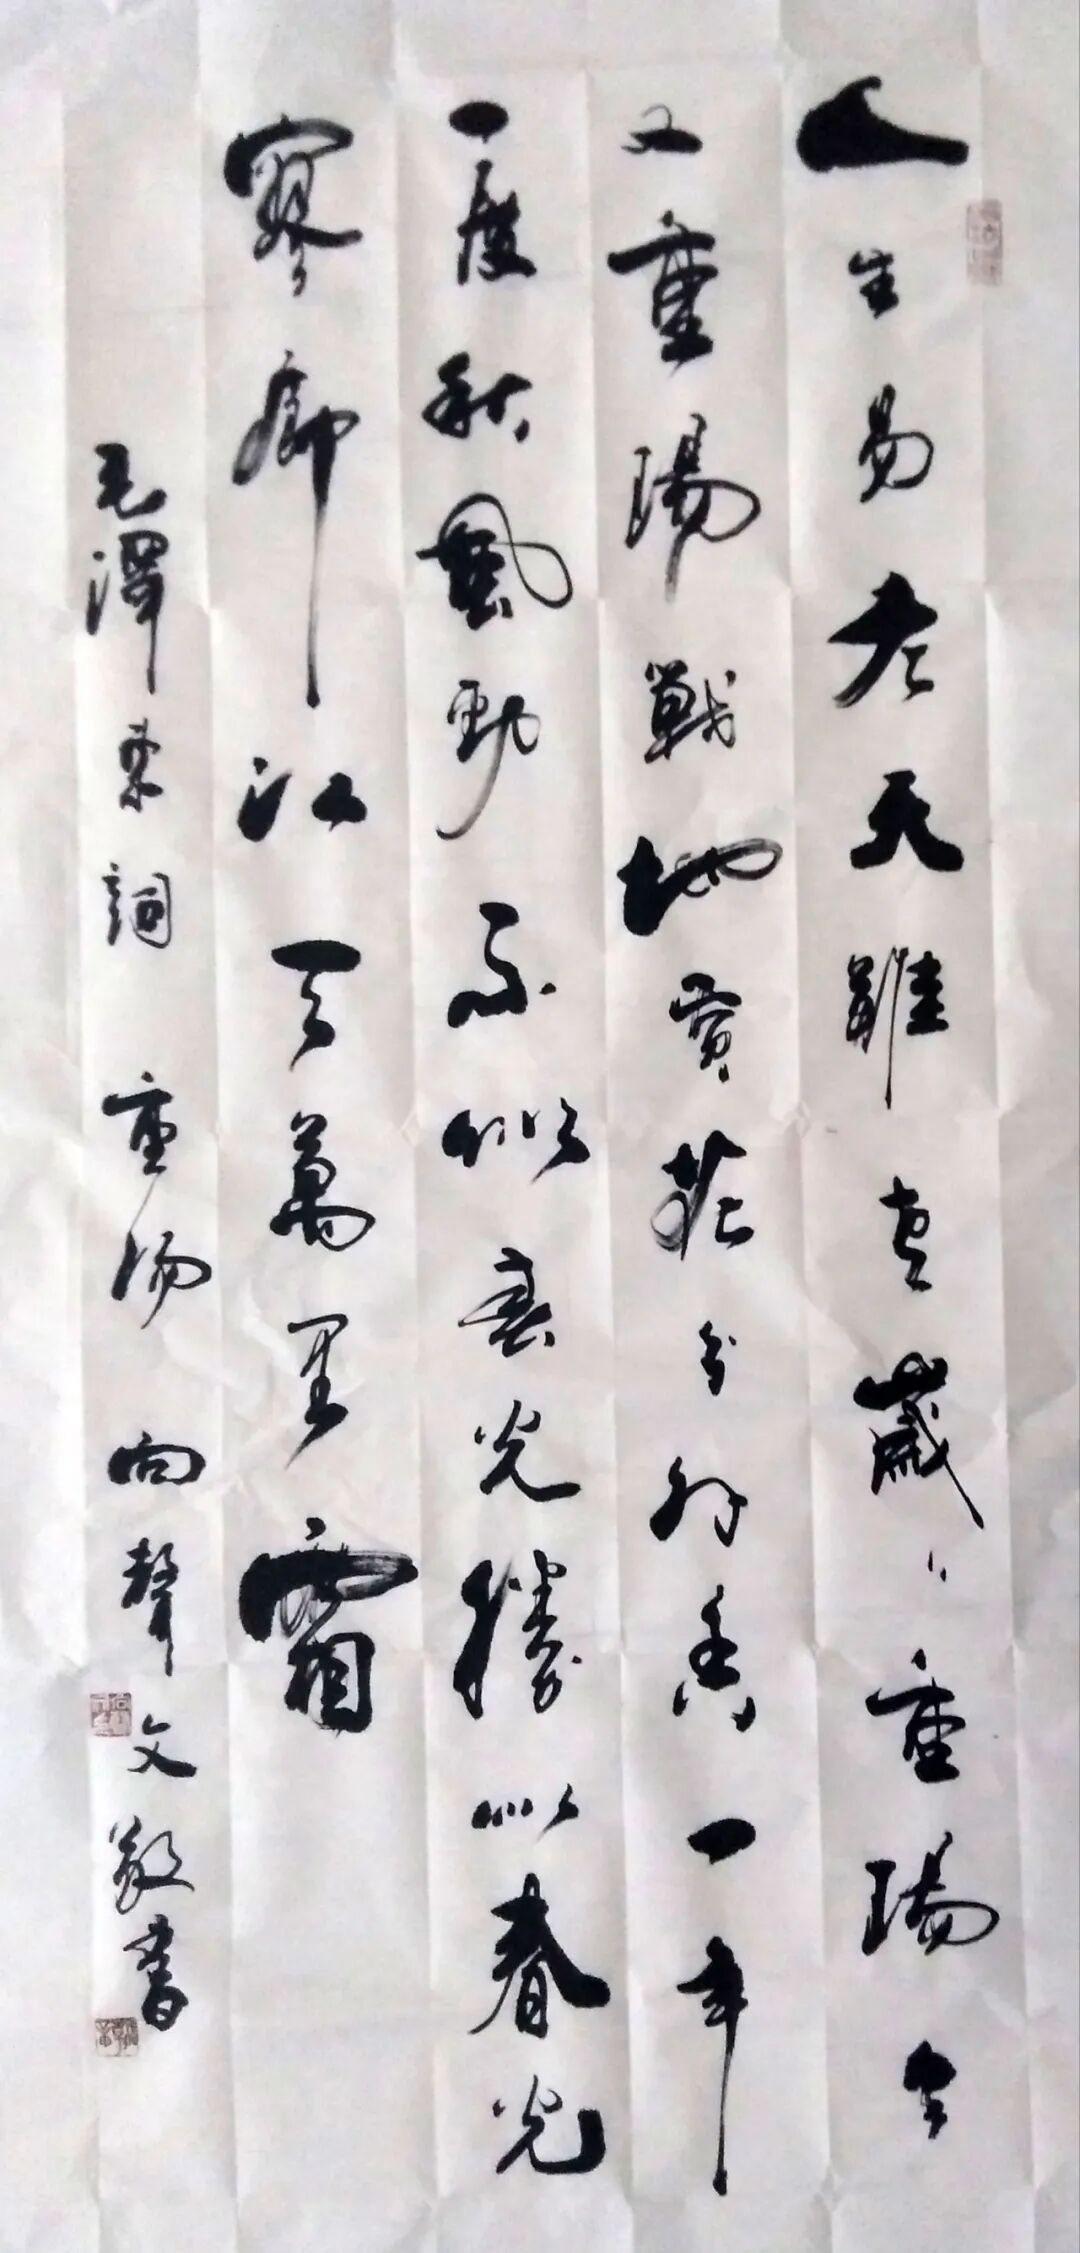 人生易老天難老歲〻重陽今
又重陽戰地黄花分外香一年
一度秋風勁不似春光勝似春光
寥廓江天萬里霜
毛澤東詞 重陽 向聲文敬書